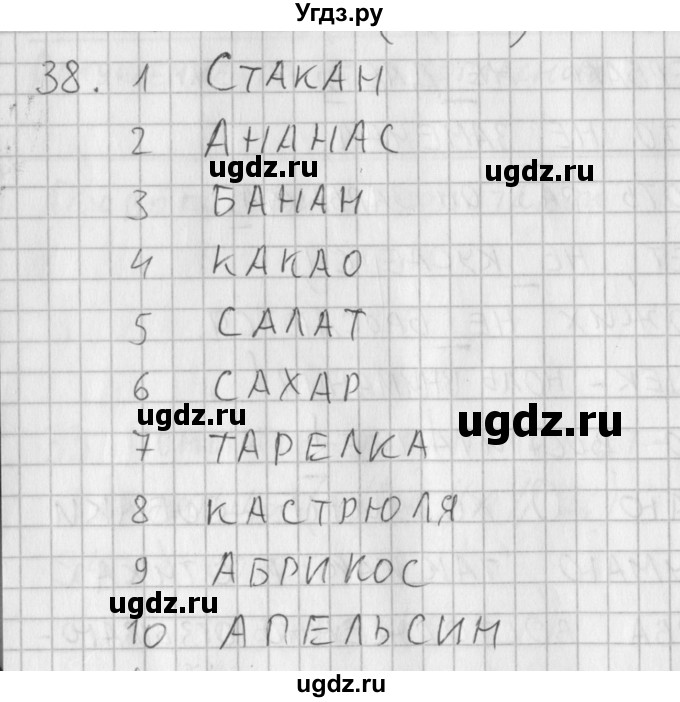 Угдз.ру
38. 1 СТАКАН
2 АНАНАС
ugdz.ru
ugdz.ru
3 БАНАН
4 КАКАО
5 САЛАТ
6 САХАР
ugdz.ru
ugdz.ru
7 ТАРЕЛКА
8 КАСТРЮЛЯ
9 АБРИКОС
ugdz.ru
10 АПЕЛЬСИН
ugdz.ru